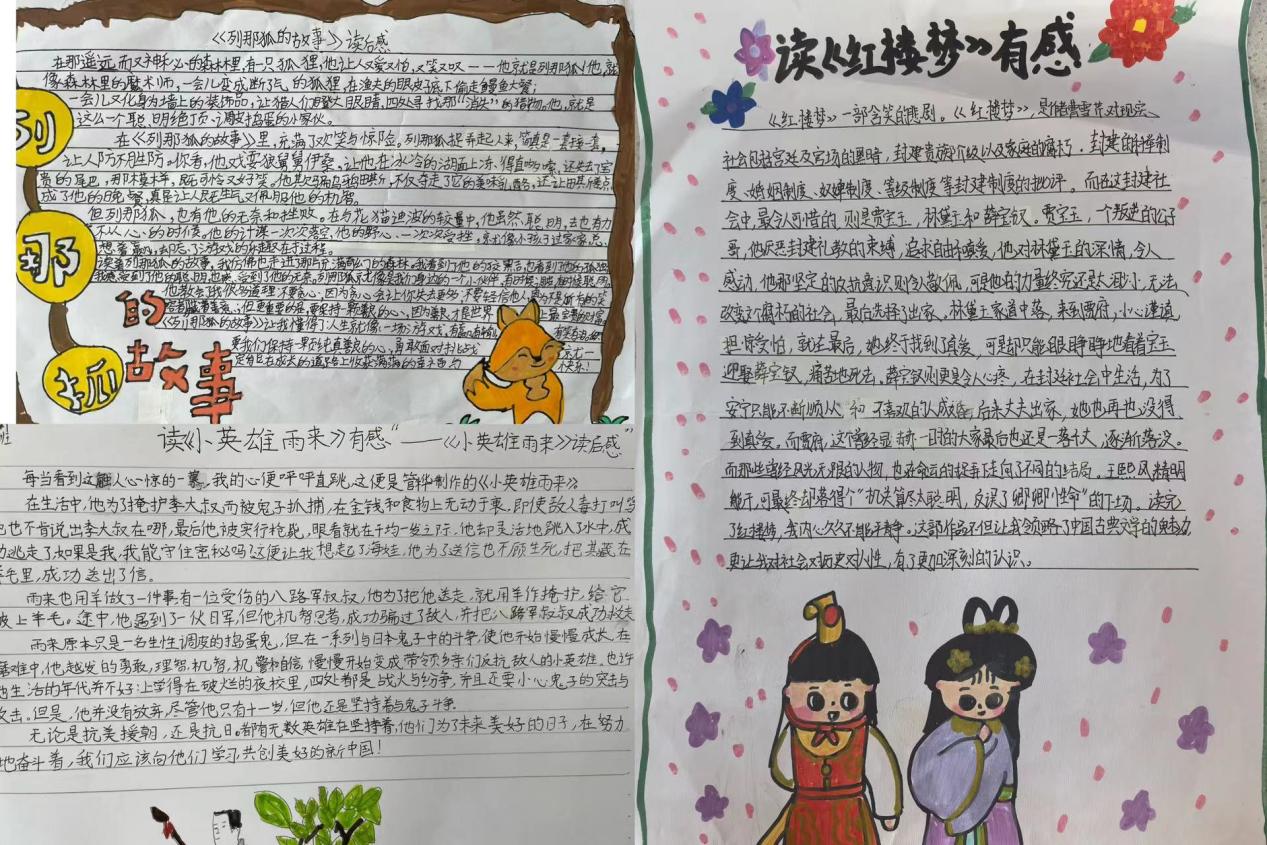 《列那狐的故事》读后感
在那遥远而又神秘的森林里,有一只狐狸,他让人又爱又怕,又笑又叹——他就是列那狐!他,就
像森林里的魔术师,一会儿变成断气的狐狸,在渔夫的眼皮底下偷走鳗鱼大餐;
一会儿又化身为墙上的装饰品,让猎人们瞪大眼睛,四处寻找那“消失”的猎物。他,就是
这么一个聪明绝顶、调皮捣蛋的小家伙。
在《列那狐的故事》里,充满了欢笑与惊险。列那狐捉弄起人来,简直是一套接一套
让人防不胜防。你看,他戏耍狼舅舅伊桑,让他在冰冷的湖面上冻得直哆嗦,还失去了宝
贵的尾巴,那模样,既可怜又好笑。他欺骗乌鸦田斯,不仅夺走了它的美味乳酪,还让田斯差点
成了他的晚餐,真是让人既生气又佩服他的机智。
但列那狐,也有他的无奈和挫败。在与花猫迪波的较量中,他虽然聪明,去也有力
不从心的时候。他的计谋一次次落空,他的野心一次次受挫,就像小孩子过家家,只
列
那
狐
的
故事
读《小英雄雨来》有感“——《小英雄雨来》读后感”
每当看到这翻人心惊的一幕,我的心便呼呼直跳,这便是管桦制作的《小英雄雨来》
在生活中,他为了掩护李大叔而被鬼子抓捕,在金钱和食物上无动于衷,即使敌人毒打叫
也不肯说出李大叔在哪,最后他被实行枪毙,眼看就在千均一发之际,他却灵活地跳入了水中,成
功逃走了如果是我,我能守住密秘吗这便让我想起了海娃,他为了送信也不顾生死,把其藏在
羊毛里,成功送出了信。
雨来也用羊做了一件事:有一位受伤的八路军叔叔,他为了把他送走,就用羊作掩护,给它
披上羊毛。途中,他遇到了一伙日军,但他机智忍者,成功骗过了敌人,并把八路军叔叔成功救走
雨来原本只是一名生性调皮的捣蛋鬼,但在一系列与日本鬼子中的斗争,使他开始慢慢成长,在
磨难中,他越发的勇敢,理智,机智,机警和自信,慢慢开始变成带领乡亲们反抗敌人的小英雄。也许
他生活的年代并不好:上学得在破烂的夜校里,四处都是战火与纷争,并且还要小心鬼子的突击与
攻击,但是,他并没有放弃,尽管他只有十一岁,但他还是坚持着与鬼子斗争。
无论是抗美援朝,还是抗日。都有无数英雄在坚持着,他们为了未来美好的日子,在努力
地奋斗着,我们应该向他们学习共创美好的新中国!
读《红楼梦》有感
《红楼梦》一部含笑的悲剧。《红楼梦》,是作者曹雪芹对现实
社会包括宫廷及官场的黑暗,封建贵族阶级以及家庭的腐朽,封建的科举制
度、婚姻制度、奴婢制度、等级制度等封建制度的批评。而在这封建社
会中,最令可惜的,则是贾宝玉,林黛玉和薛宝钗。贾宝玉,一个叛逆的公子
哥,他厌恶封建礼教的束缚,追求自由和真爱,他对林黛玉的深情,令人
感动,他那坚定的反抗意识则令人敬佩,可是他的力量终究还是太渺小,无法
改变这个腐朽的社会,最后选择了出家。林黛玉家道中落,来到贾府,小心谨慎
担惊受怕,就在最后,她终于找到了真爱,可是却只能眼睁睁地看着宝玉
迎娶薛宝钗,痛苦地死去。薛宝钗则更是令人心疼,在封建社会中生活,为了
安宁只能不断顺从,和不喜欢的人成婚,后来丈夫出家,她也再也没得
到真爱。而贾府,这个曾经显赫一时的大家最后也还是一落千丈,逐渐落没。
而那些曾经风光无限的人物,也在命运的捉弄下走向了不同的结局。王熙凤精明
能干,可最终却落得个“机关算尽太聪明,反误了卿卿性命”的下场。读完
了红楼梦,我内心久久不能平静,这部作品不但让我领略了中国古典文学的魅力
更让我对社会对历史对人性,有了更加深刻的认识。